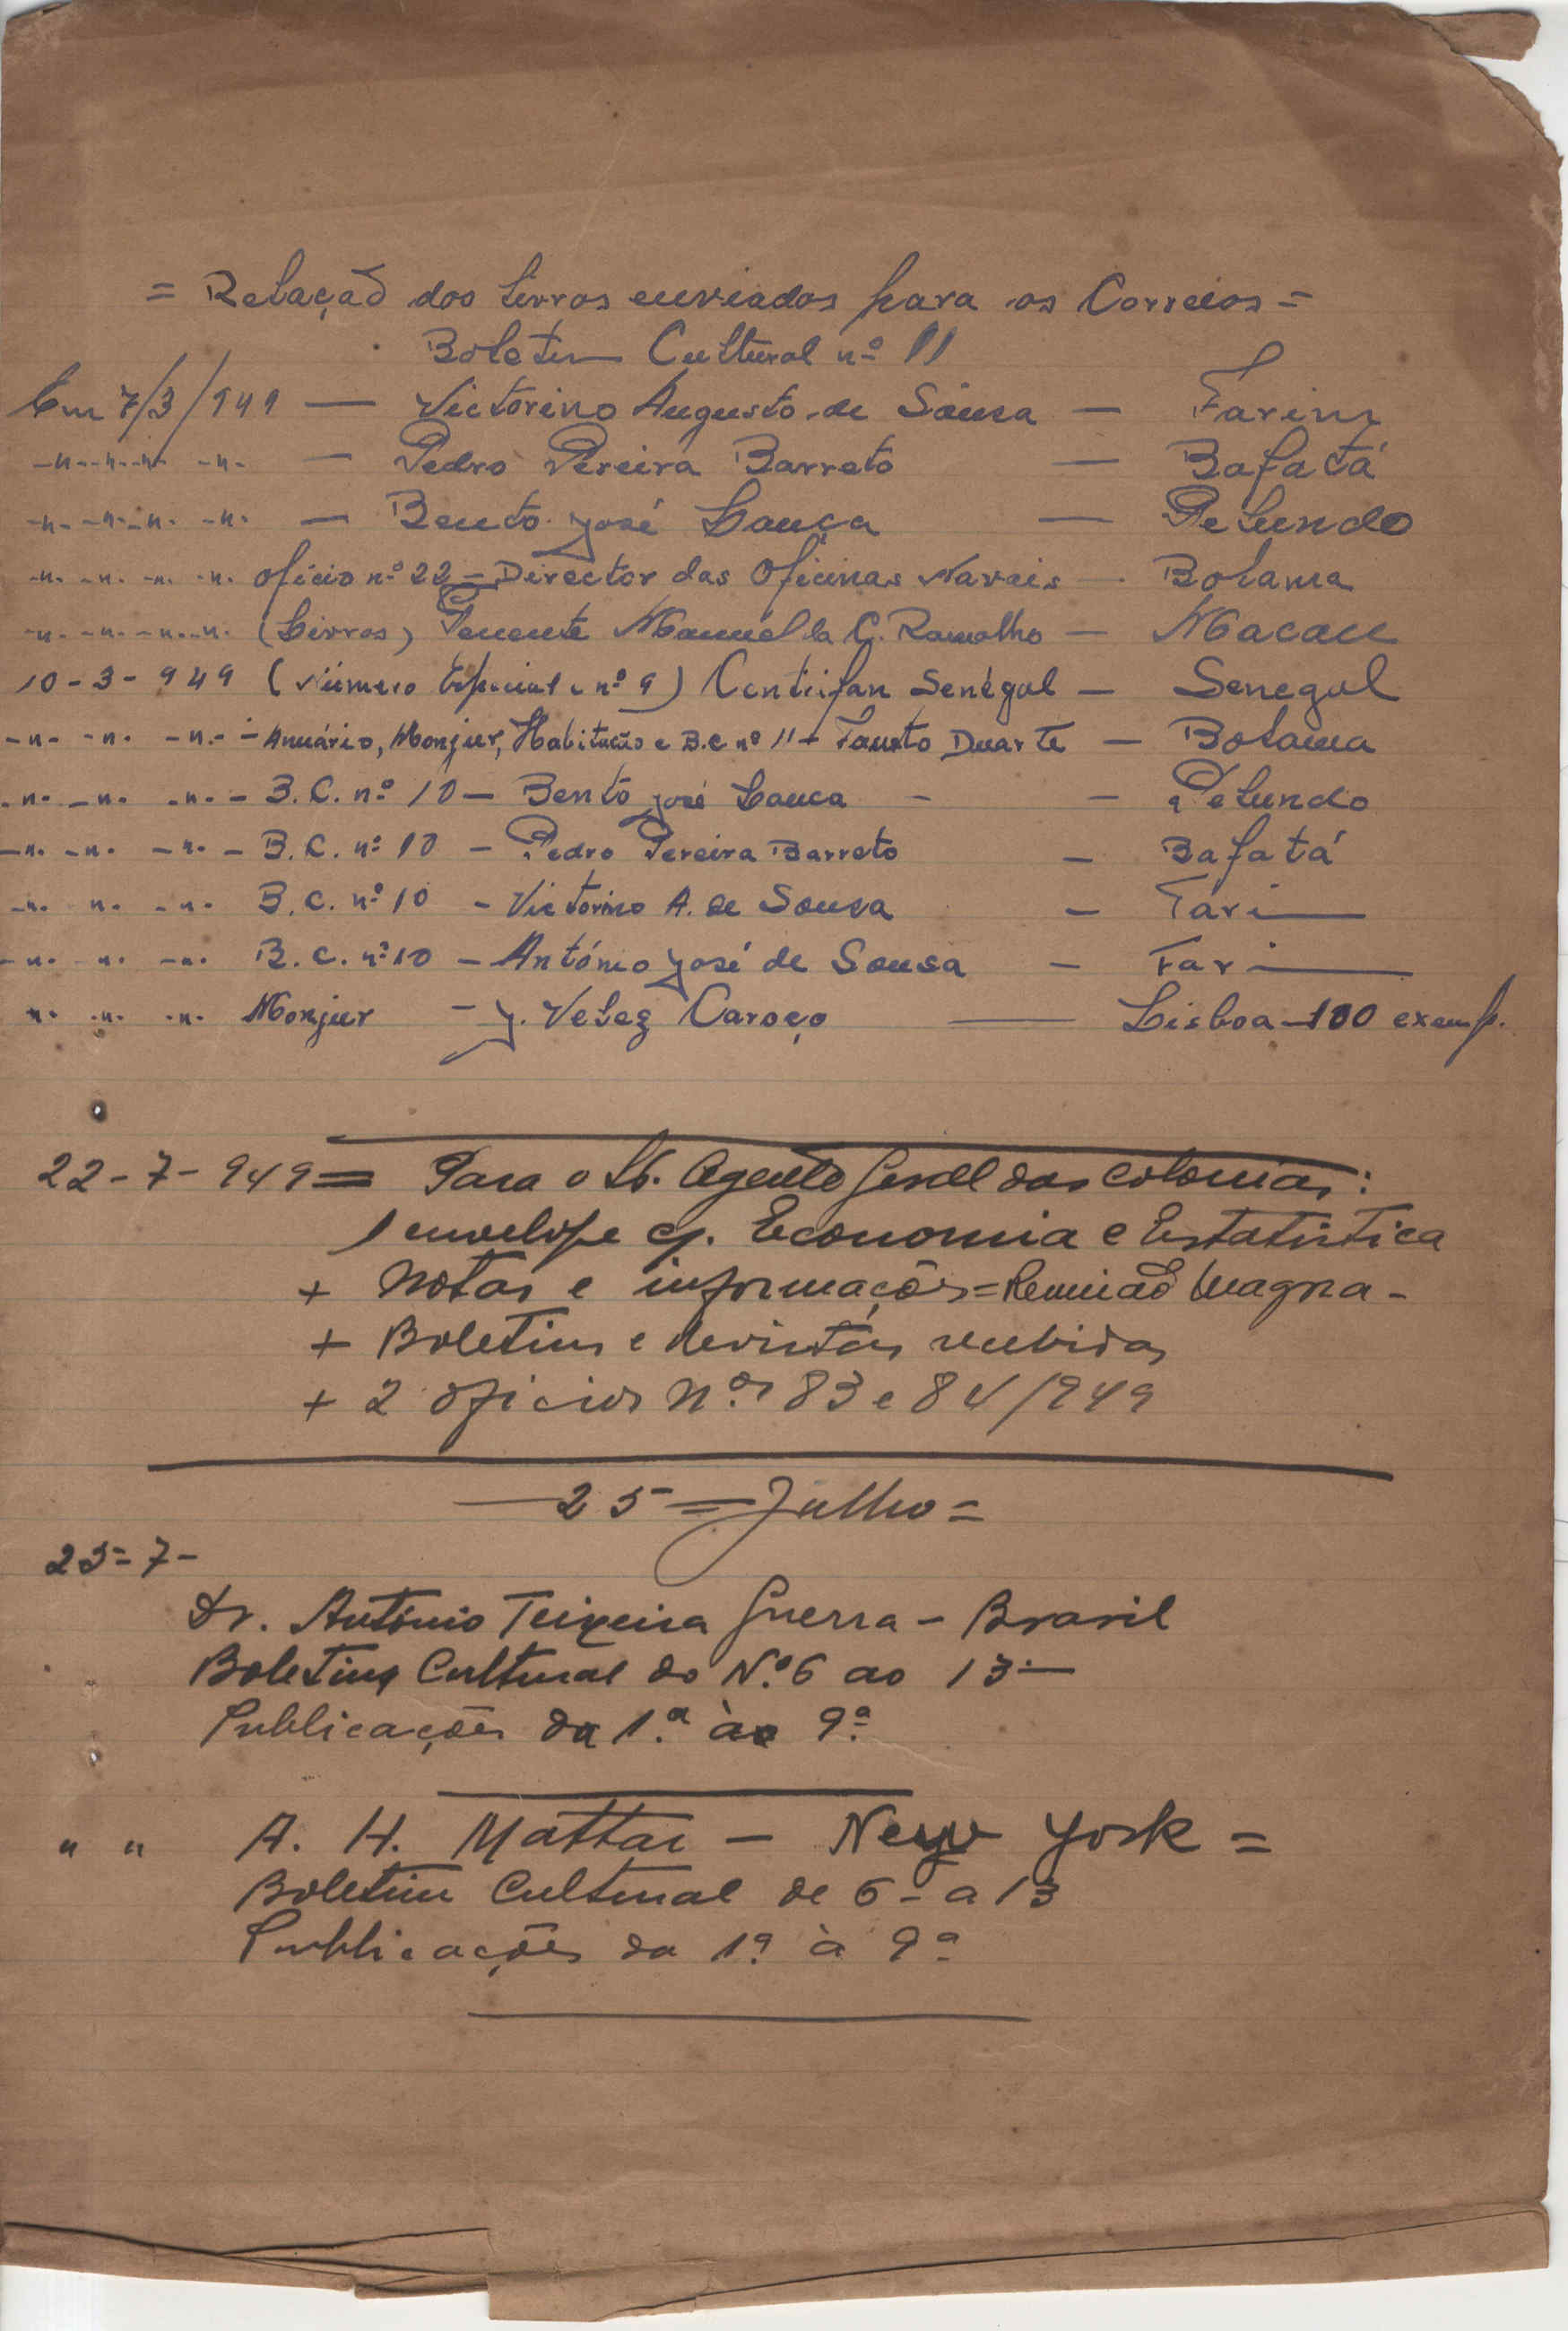 = Relação dos livros enviados para os Correios =
Boletim Cultural nº 11
Em 7/3/949 — Victorino Augusto de Sousa — Farim
-"- -"- -"- -"- — Pedro Pereira Barreto — Bafatá
-"- -"- -"- -"- — Bento José Lauça — Pelundo
-"- -"- -"- -"- ofício nº 22 — Director das Oficinas Navais — Bolama
-"- -"- -"- -"- (Livros) Tenente Manuel da C. Ramalho — Macau
10-3-949 (Número Especial e nº 9) Centrifan Senégal — Senegal
-"- -"- -"- - Anuário, Monjur, Habitação e B.C nº 11 - Fausto Duarte — Bolama
-"- -"- -"- - B.C. nº 10 — Bento José Lauca - — Pelundo
-"- -"- -"- - B.C. nº 10 - Pedro Pereira Barreto — Bafatá
-"- "- -"- B.C. nº 10 - Victorino A. de Sousa — Fari—
-"- "- -"- B.C. nº 10 - António José de Sousa — Fari—
"- -"- -"- Monjur - J. Velez Caroço — Lisboa - 100 exemp.
22-7-949 = Para o Sr. Agente Geral das Colonias:
1 envelope c/. Economia e Estatistica
+ Notas e informações = Reunião Magna -
+ Boletins e Revistas recebidas
+ 2 oficios Nos 83 e 84/949
— 25 = Julho =
25-7-
Dr. António Teixeira Guerra - Brasil
Boletim Cultural do N.º 6 ao 13 —
Publicações da 1.ª à 9.ª
" " A. H. Mattar — New York =
Boletim Cultural de 6 - a 13
Publicações da 1ª à 9ª